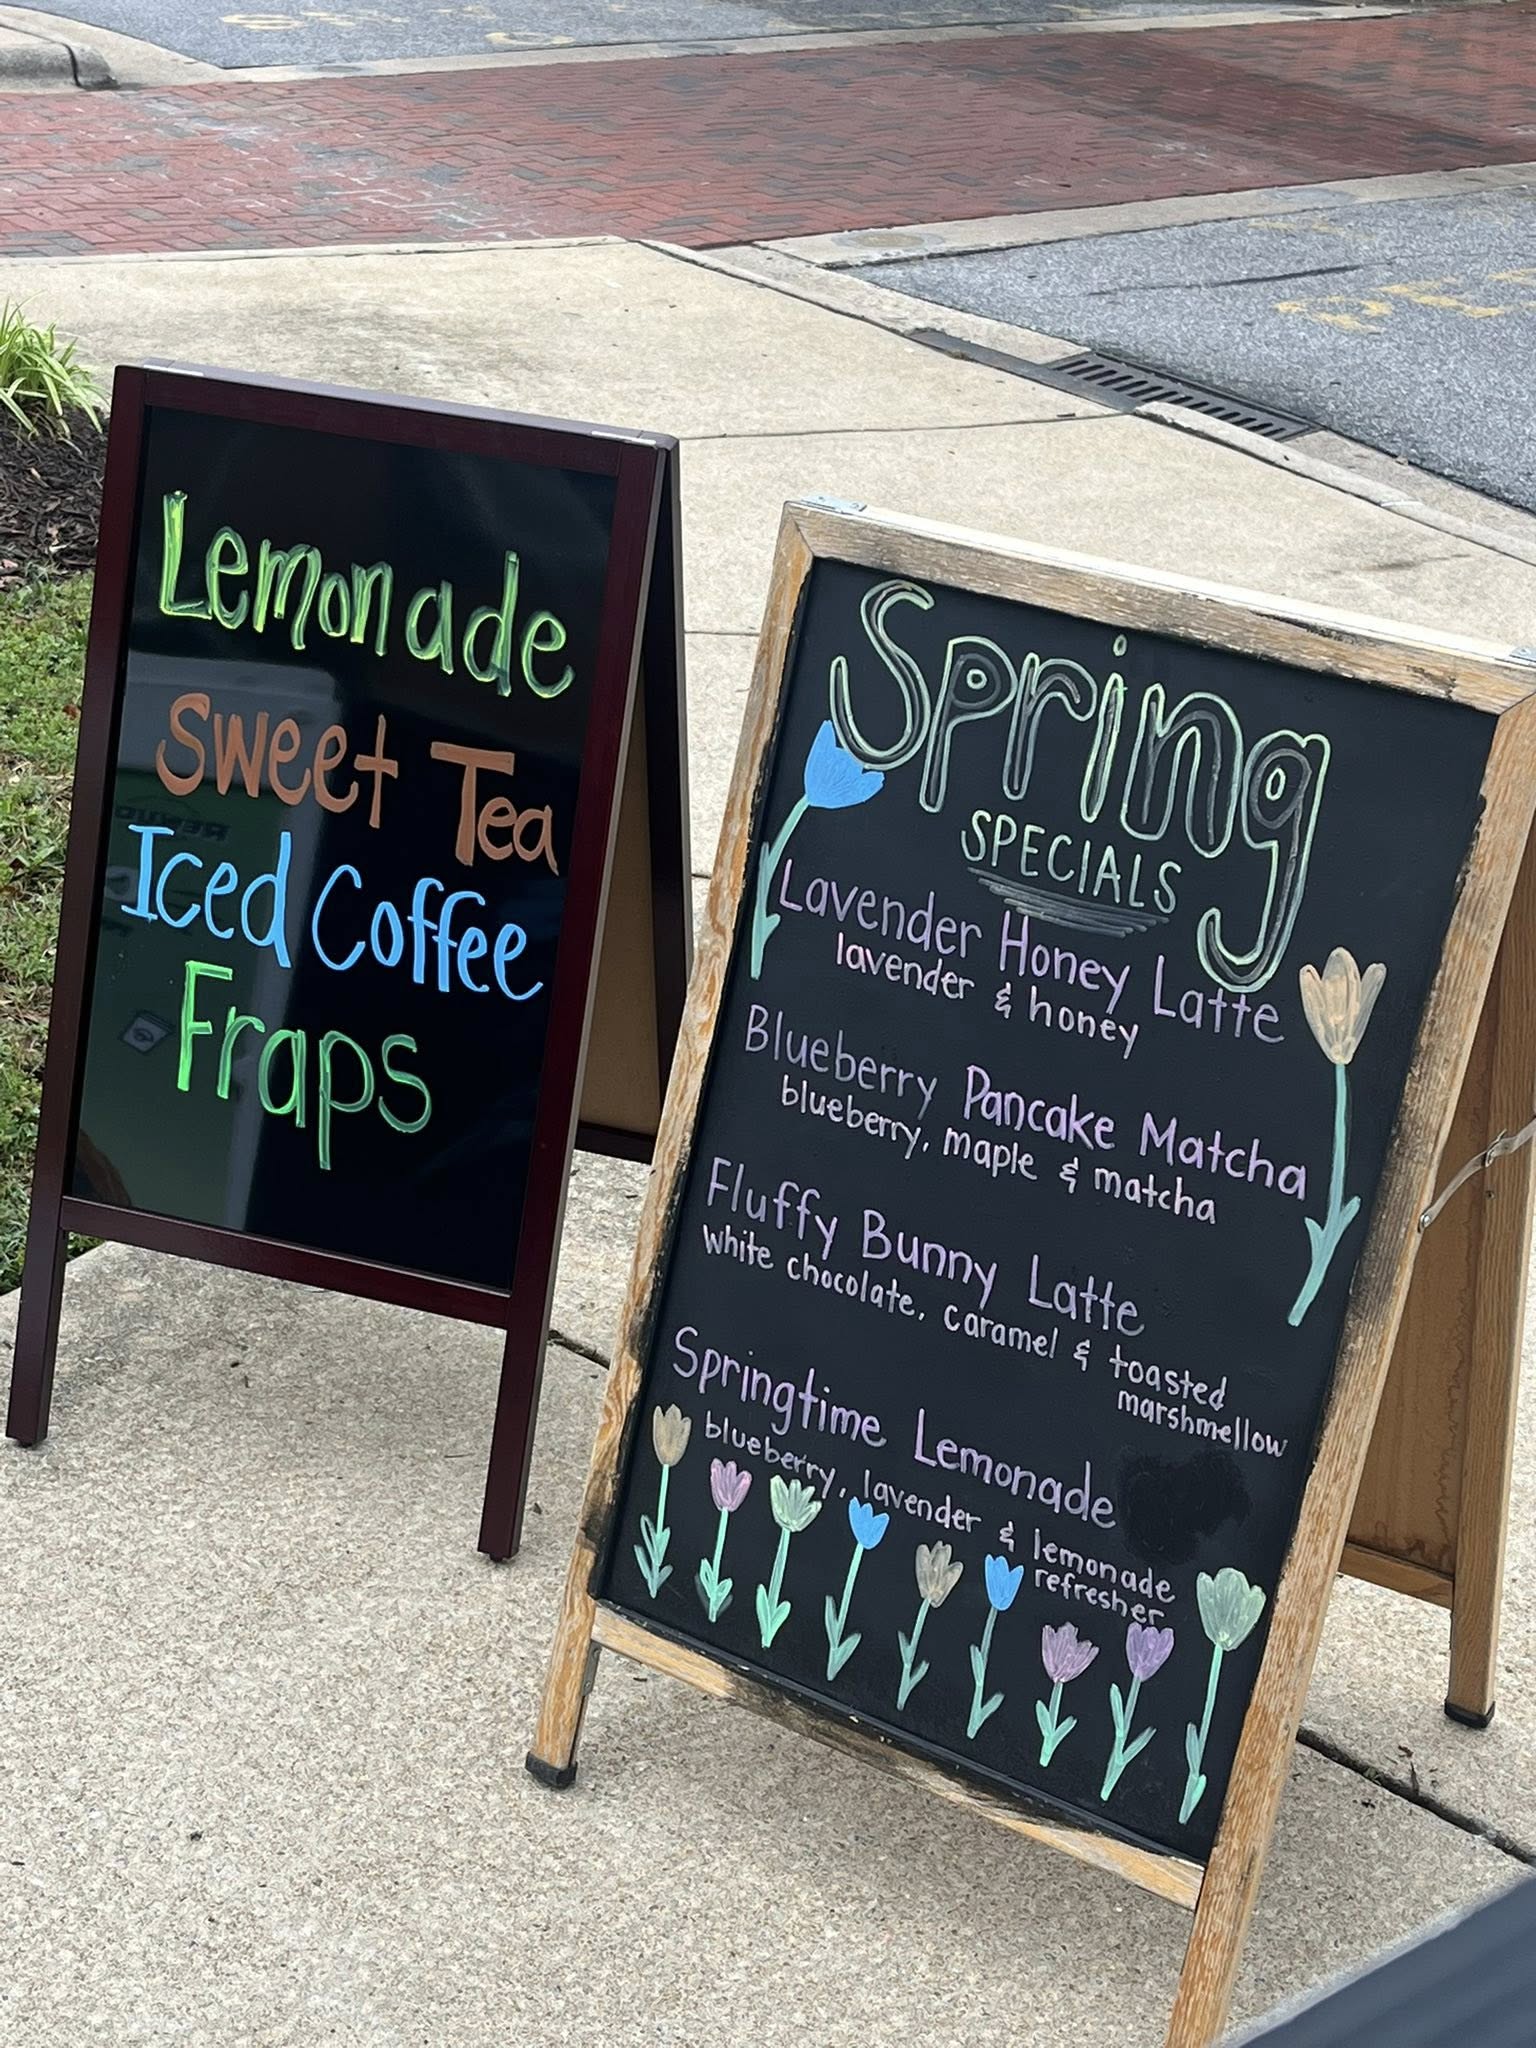 Lemonade
Sweet Tea
Iced Coffee
Fraps
Spring
SPECIALS
Lavender Honey Latte
lavender & honey
Blueberry Pancake Matcha
blueberry, maple & matcha
Fluffy Bunny Latte
white chocolate, caramel & toasted
marshmellow
Springtime Lemonade
blueberry, lavender & lemonade
refresher